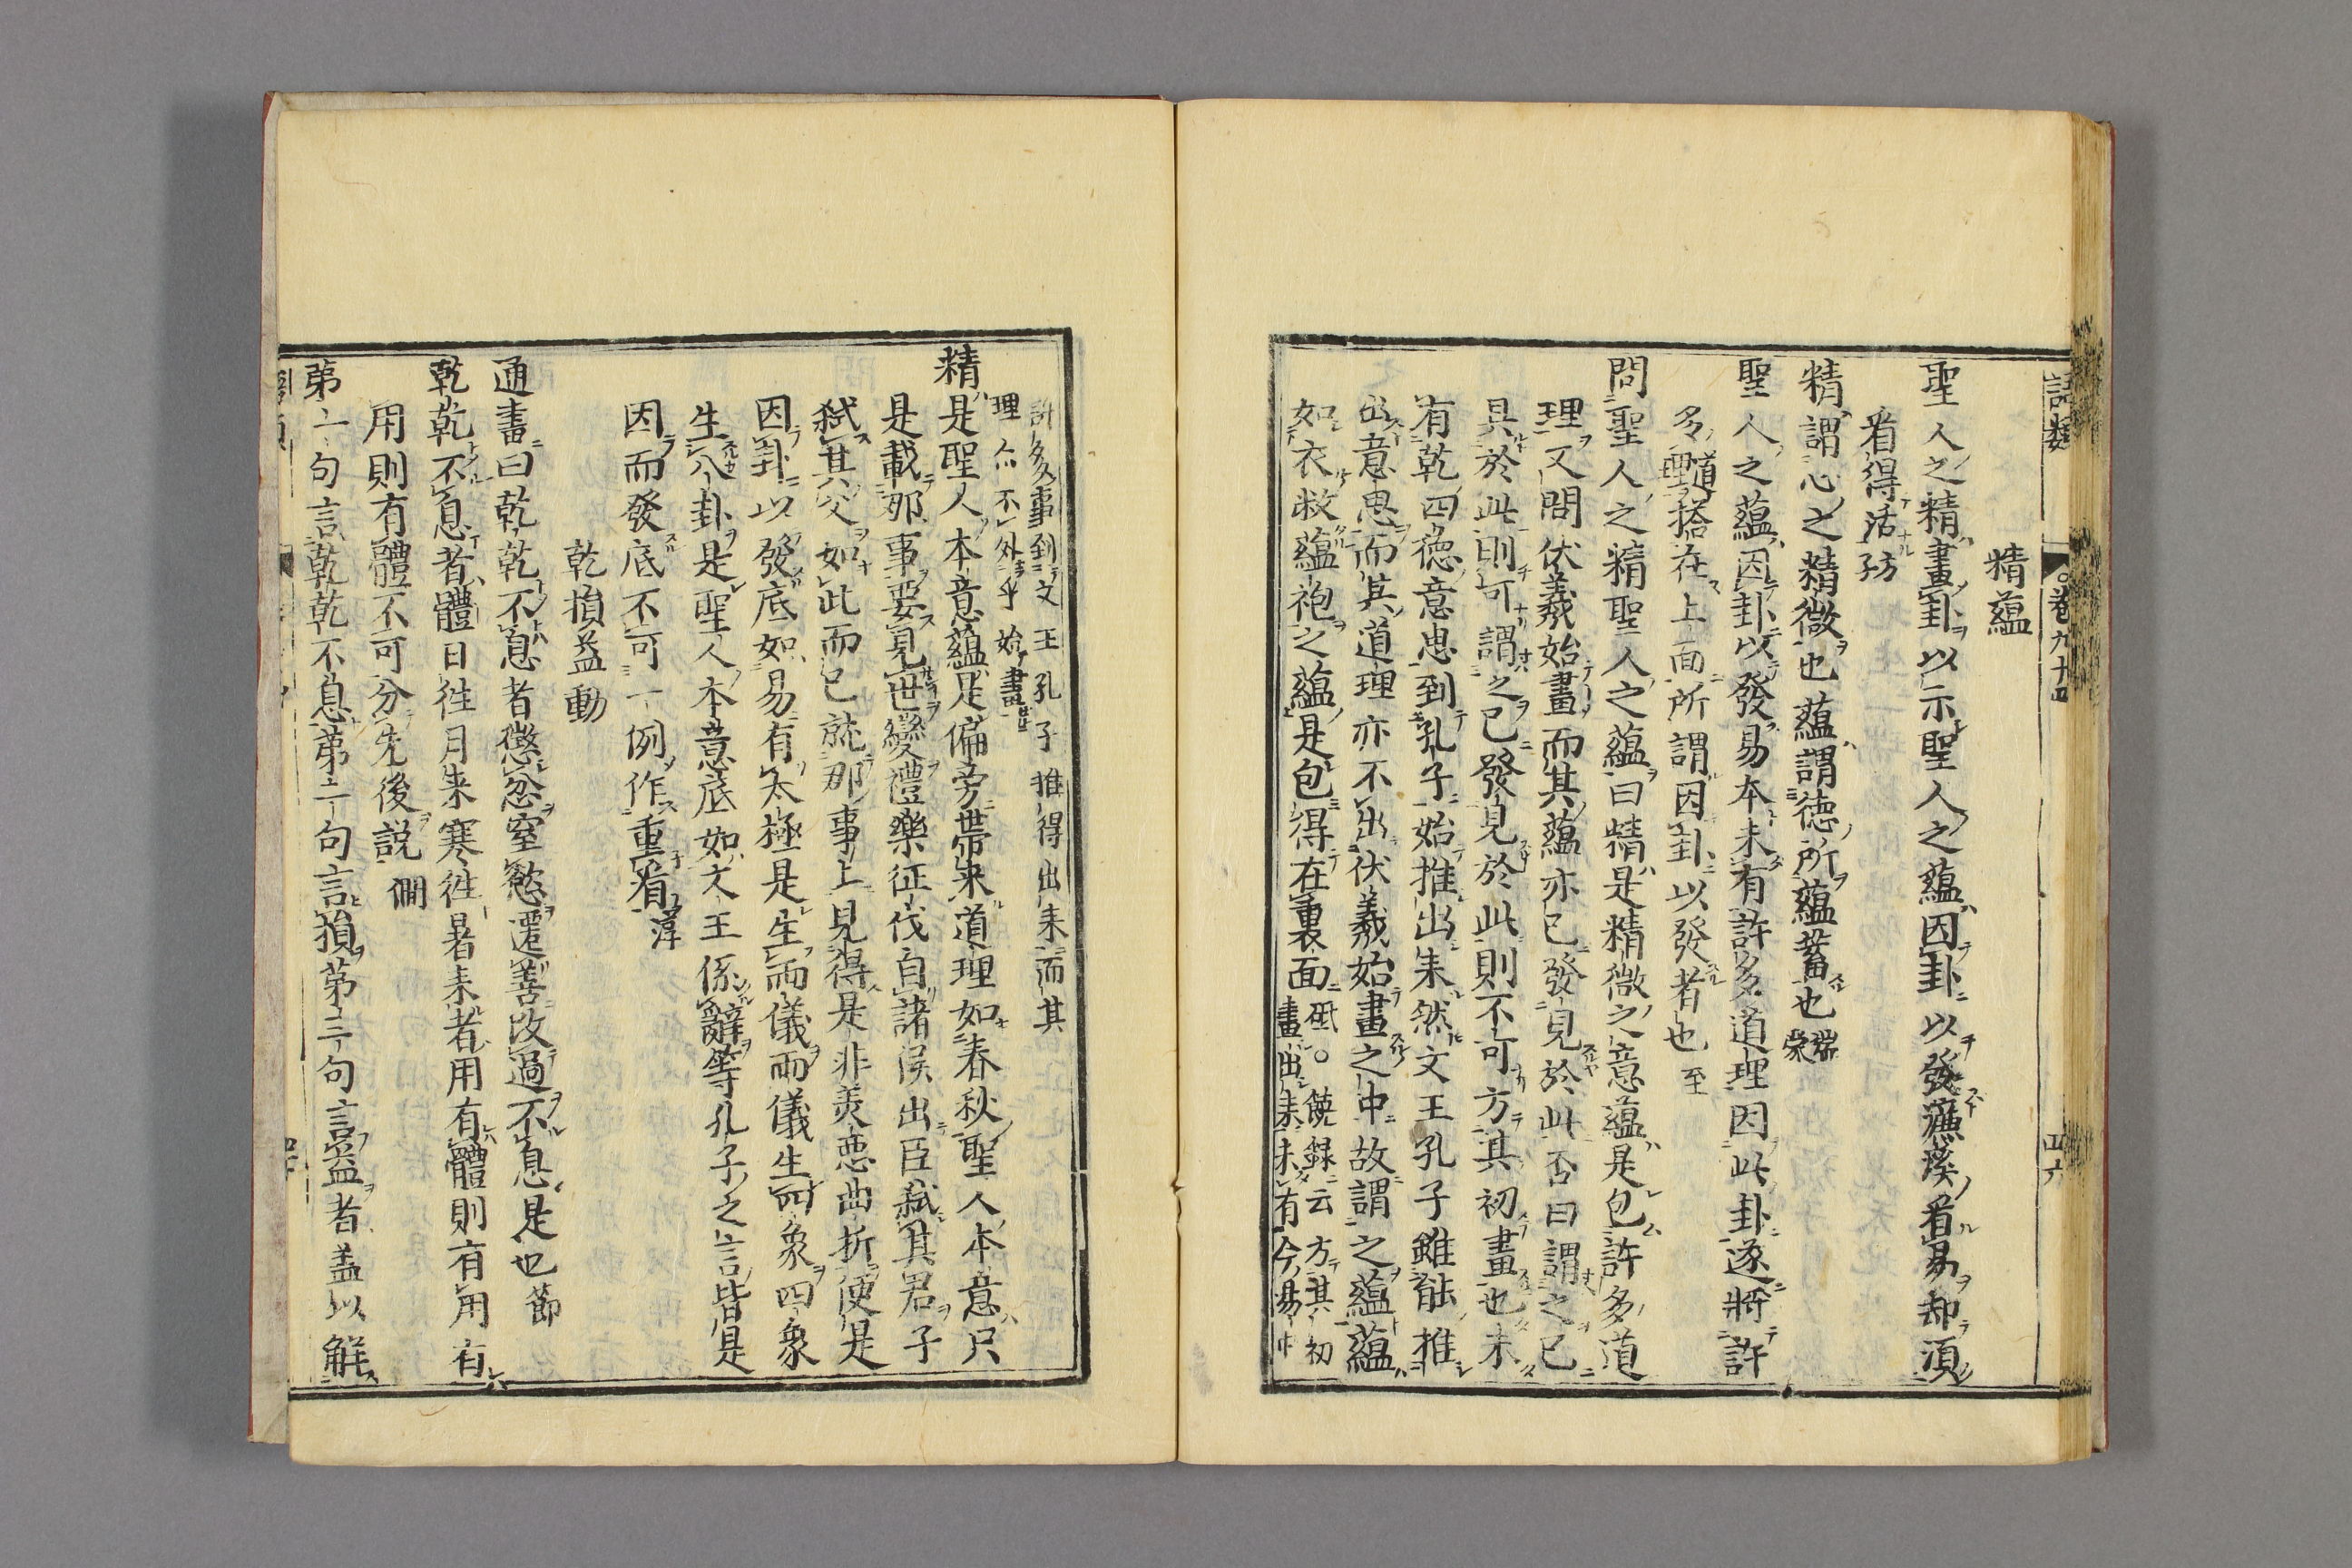 語類 卷九十四
精蘊
聖人之精畫卦以示聖人之蘊因卦以發濂溪看易却須
看得活 子方
精謂心之精微也蘊謂德所蘊蓄也 端蒙
聖人之蘊因卦以發易本未有許多道理因此卦遂將許
多道理搭在上面所謂因卦以發者也 至
問聖人之精聖人之蘊曰精是精微之意蘊是包許多道
理又問伏羲始畫而其蘊亦已發見於此否曰謂之已
具於此則可謂之已發見於此則不可方其初畫也未
有乾四德意思到孔子始推出来然文王孔子雖能推
出意思而其道理亦不出伏羲始畫之中故謂之蘊蘊
如衣敝蘊袍之蘊是包得在裏面 砥○饒録云方其初
畫出来未有今易中
許多事到文王孔子推得出来而其
理亦不外乎始畫
精是聖人本意蘊是偏旁帶来道理如春秋聖人本意只
是載那事要見世變禮樂征伐自諸侯出臣弑其君子
弑其父如此而已就那事上見得是非美惡曲折便是
因卦以發底如易有太極是生兩儀兩儀生四象四象
生八卦是聖人本意底如文王係辭等孔子之言皆是
因而發底不可一例作重看 淳
乾損益動
通書曰乾乾不息者懲忿窒慾遷善改過不息是也 節
乾乾不息者體日徃月来寒徃暑来者用有體則有用有
用則有體不可分先後說 僩
第一句言乾乾不息第二句言損第三句言益者盖以解